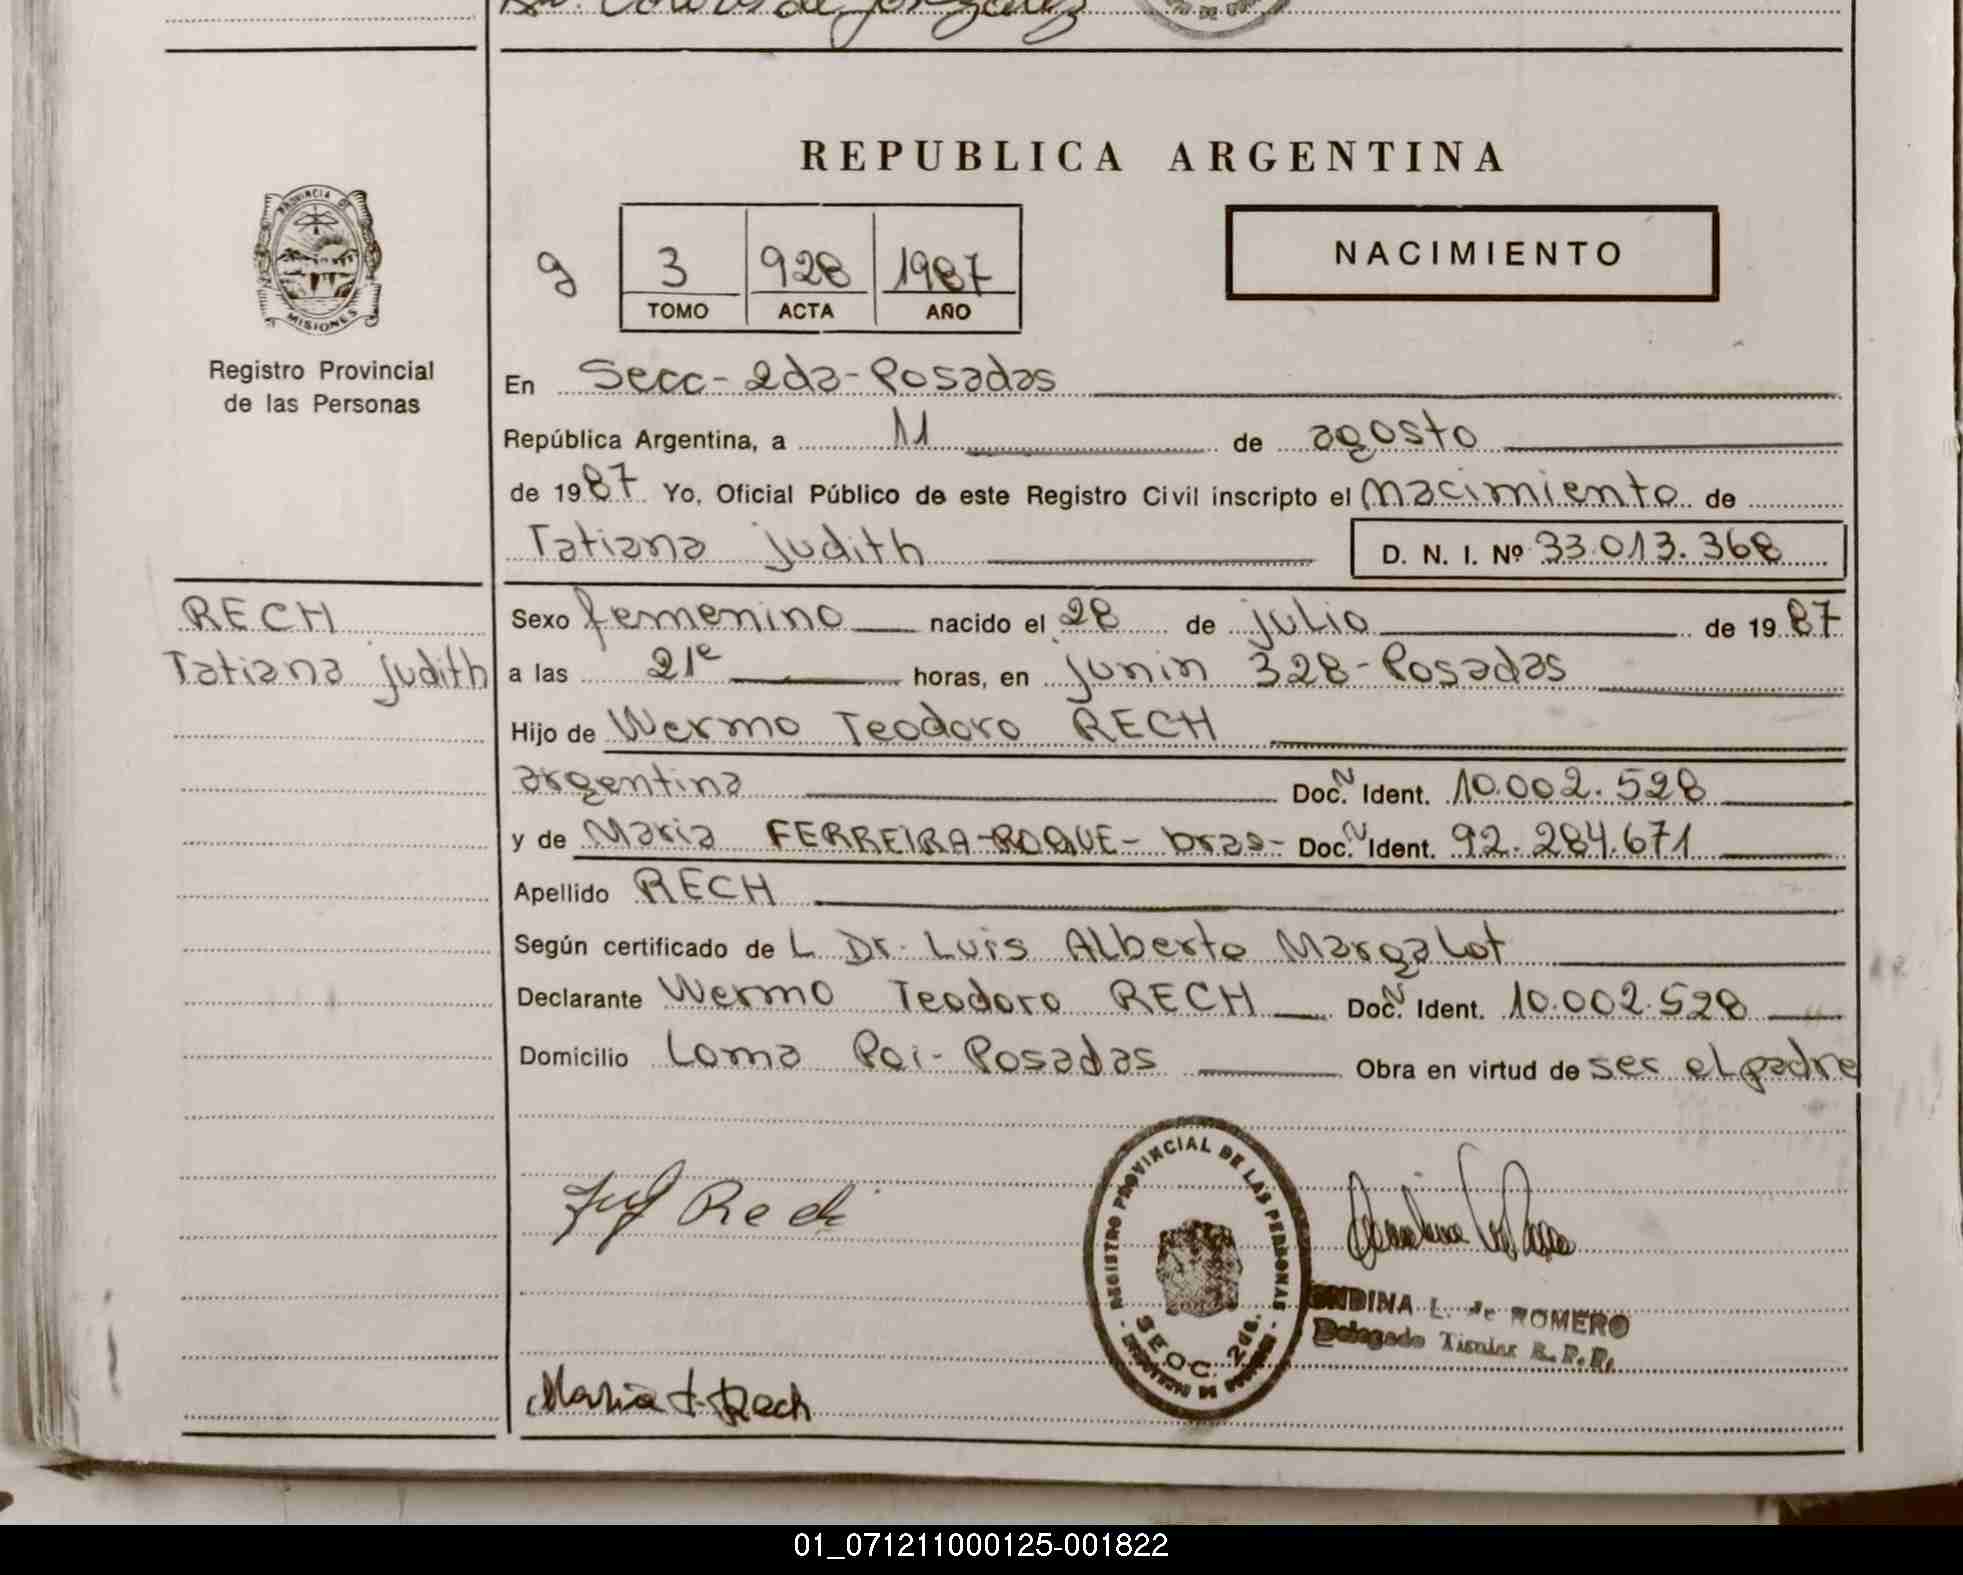 REPUBLICA ARGENTINA
PROVINCIA DE
MISIONES
Registro Provincial
de las Personas
9 3 928 1987
TOMO ACTA AÑO
NACIMIENTO
En Secc-2da-Posadas
República Argentina, a 11 de agosto
de 1987 Yo, Oficial Público de este Registro Civil inscripto el nacimiento de
Tatiana Judith D. N. I. Nº 33.013.368
RECH
Tatiana Judith
Sexo femenino nacido el 28 de julio de 1987
a las 21º horas, en Junin 328-Posadas
Hijo de Wermo Teodoro RECH
argentina Doc. N Ident. 10.002.528
y de Maria FERREIRA-ROQUE- bras- Doc. N Ident. 92.284.671
Apellido RECH
Según certificado de L Dr. Luis Alberto Margalot
Declarante Wermo Teodoro RECH Doc. N Ident. 10.002.528
Domicilio Loma Poi-Posadas Obra en virtud de ser el padre
Rech
REGISTRO PROVINCIAL DE LAS PERSONAS
SECC. 2da.
ONDINA L. de ROMERO
Delegado Titular R.P.P.
Maria F. Rech
01_071211000125-001822